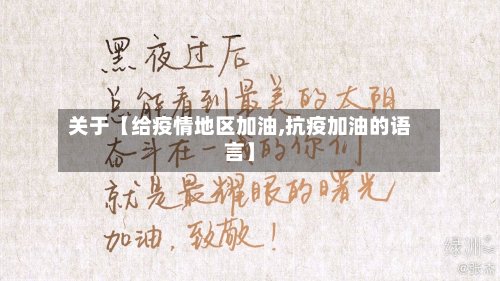 黑夜过后
总能看到最美的太阳
关于【给疫情地区加油,抗疫加油的语
言】
奋斗在一的你们
就是最耀眼的曙光
加油，致敬！
绿洲
@张